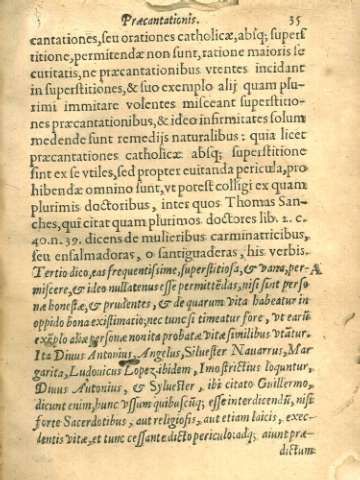 Præcantationis. 35
cantationes, seu orationes catholicæ, absq; supersſ
titione, permitendæ non sunt, ratione maioris se
curitatis, ne præcantationibus vtentes incidant
in superstitiones, & suo exemplo alij quam plu-
rimi immitare volentes misceant superstitio-
nes præcantationibus, & ideo infirmitates solum
medendæ sunt remedijs naturalibus: quia licet
præcantationes catholicæ absq; superstitione
sint ex se vtiles, sed propter euitanda pericula, pro
hibendæ omnino sunt, vt potest colligi ex quam
plurimis doctoribus, inter quos Thomas San-
ches, qui citat quam plurimos doctores lib. 2. c.
40. n. 39. dicens de mulieribus carminatricibus,
seu ensalmadoras, o santiguaderas, his verbis.
Tertio dico, eas frequentisime, superstitiosa, & vana, per- A
miscere, & ideo nullatenus esse permittẽdas, nisi sint perso
næ honestæ, & prudentes, & de quarum vita habeatur in
oppido bona existimatio; nec tunc si timeatur fore, vt earũ
exẽplo aliæ personæ non ita probatæ vitæ similibus vtãtur.
Ita Diuus Antonius, Angelus, Siluester Nauarrus, Mar
garita, Ludouicus Lopez ibidem, Imo strictius loquntur,
Diuus Antonius, & Syluester, ibi citato Guillermo,
dicunt enim, hunc vssum quibuscũq; esse interdicendũ, nisi
forte Sacerdotibus, aut religiosis, aut etiam laicis, exce-
dentis vitæ, et tunc cessante dicto periculo: adq; aiunt præ-
dictum